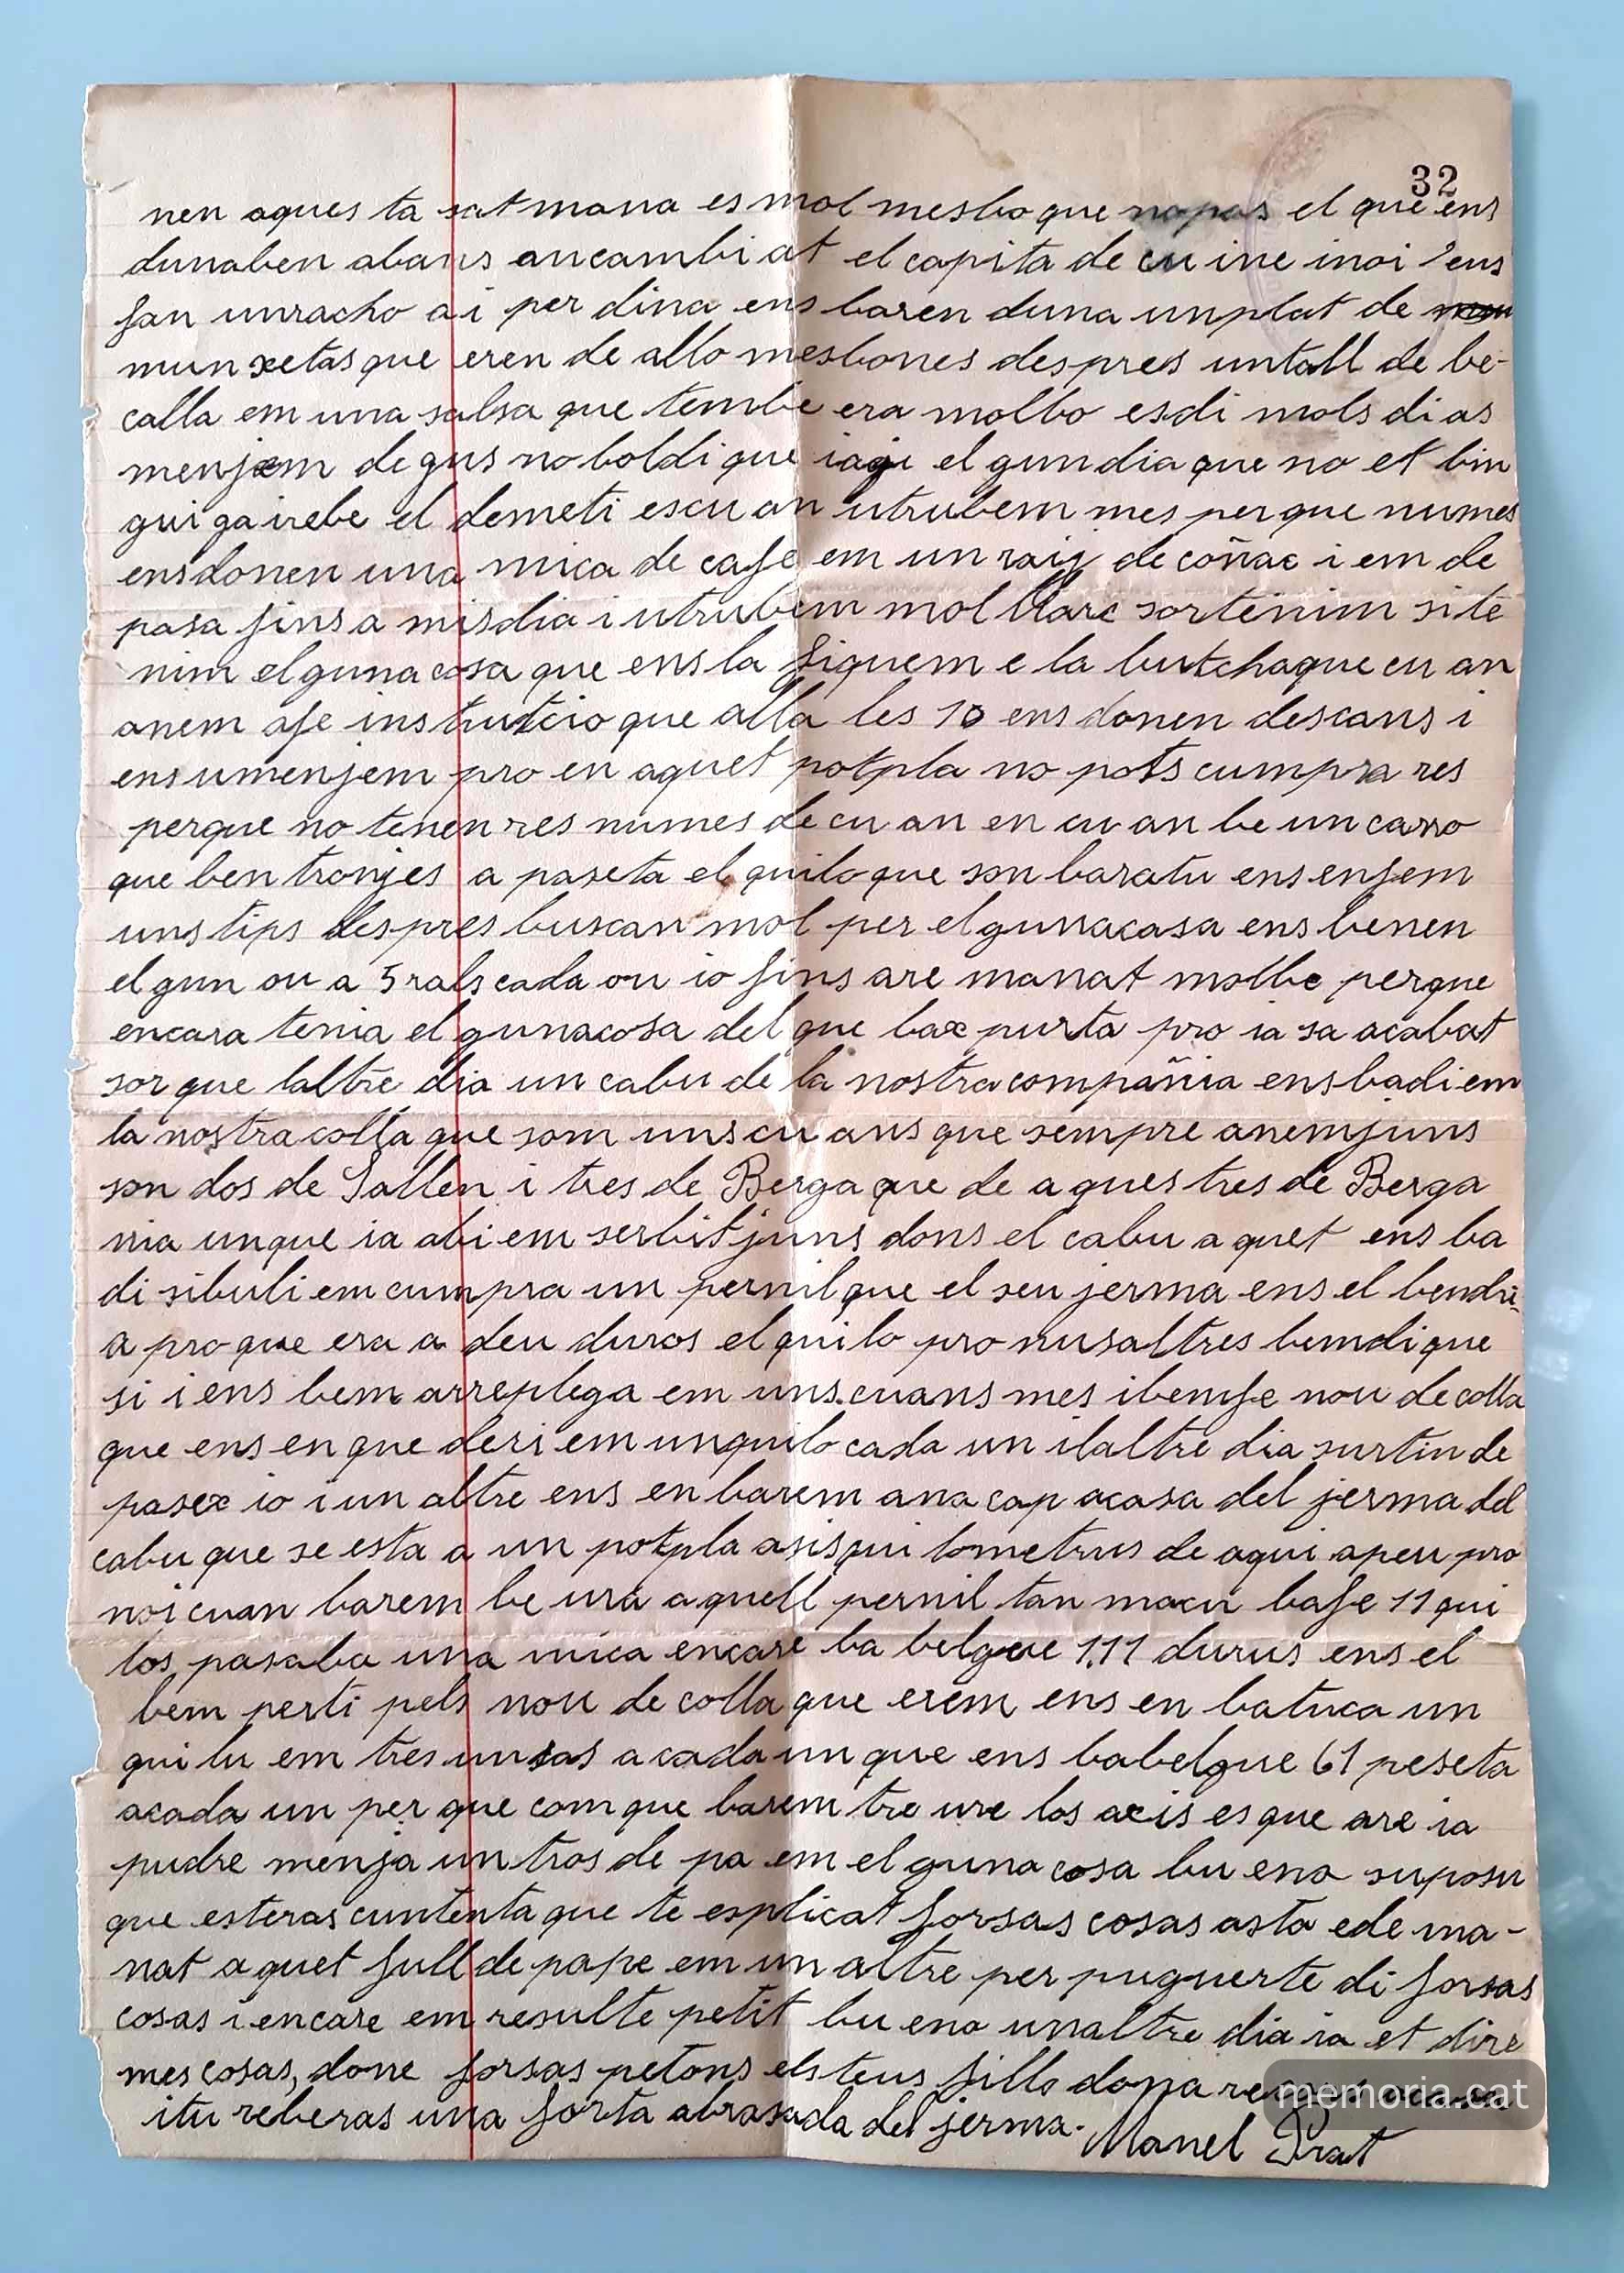 32
nen aques ta satmana es mol mesbo que nopas el que ens
dunaben abans ancambi at el capita de cuine inoi ens
fan unracho ai per dina ens baren duna unplat de
munxetas que eren de allo mesbones despres untall de be-
calla em una salsa que tembe era molbo esdi mols dias
menjem de gus no boldi que iagi el gun dia que no et bin
gui gairebe el demeti escuan utrubem mes per que numes
ens donen una mica de cafe em un raig de coñac i em de
pasa fins a misdia i utrubem mol llarc sortenim si te
nim elguna cosa que ens la fiquem e la butchaque cu an
anem afe instrutcio que alla les 10 ens donen descans i
ens umenjem pro en aquet potpla no pots cumpra res
perque no tenen res numes de cu an en cu an be un carro
que ben tronjes a paseta el quilo que son baratu ens enfem
uns tips despres buscan mol per el gunacasa ens benen
el gun ou a 5 rals cada ou io fins are manat molbe perque
encara tenia el gunacosa del que bax purta pro ia sa acabat
sor que laltre dia un cabu de la nostra compañia ens badi em
la nostra colla que som uns cu ans que sempre anem juns
son dos de Sallen i tres de Berga que de aques tres de Berga
nia un que ia abi em serbit juns dons el cabu aquet ens ba
di sibuli em cumpra un pernil que el seu jerma ens el bendri
a pro que era a deu duros el quilo pro nusaltres bemdi que
si i ens bem arreplega em uns cuans mes ibemfe nou de colla
que ens en que deri em unquilo cada un ilaltre dia surtin de
pasex io i un altre ens en barem ana cap acasa del jerma del
cabu que se esta a un potpla asis qui lometrus de aqui apeu pro
noi cuan barem be ura aquell pernil tan macu bafe 11 qui
los pasaba una mica encare ba belgue 111 durus ens el
bem perti pels nou de colla que erem ens en batuca un
qui lu em tres unsas a cada un que ens babelgue 61 peseta
acada un per que com que barem tre ure los acis es que are ia
pudre menja un tros de pa em el guna cosa bu eno suposu
que esteras cuntenta que te esplicat forsas cosas asta ede ma-
nat aquet full de pape em un altre per puguerte di forsas
cosas i encare em resulte petit bu eno unaltre dia ia et dire
mes cosas, done forsas petons els teus fills dona
itu reberas una forta abrasada del jerma.
Manel Prat
memoria.cat